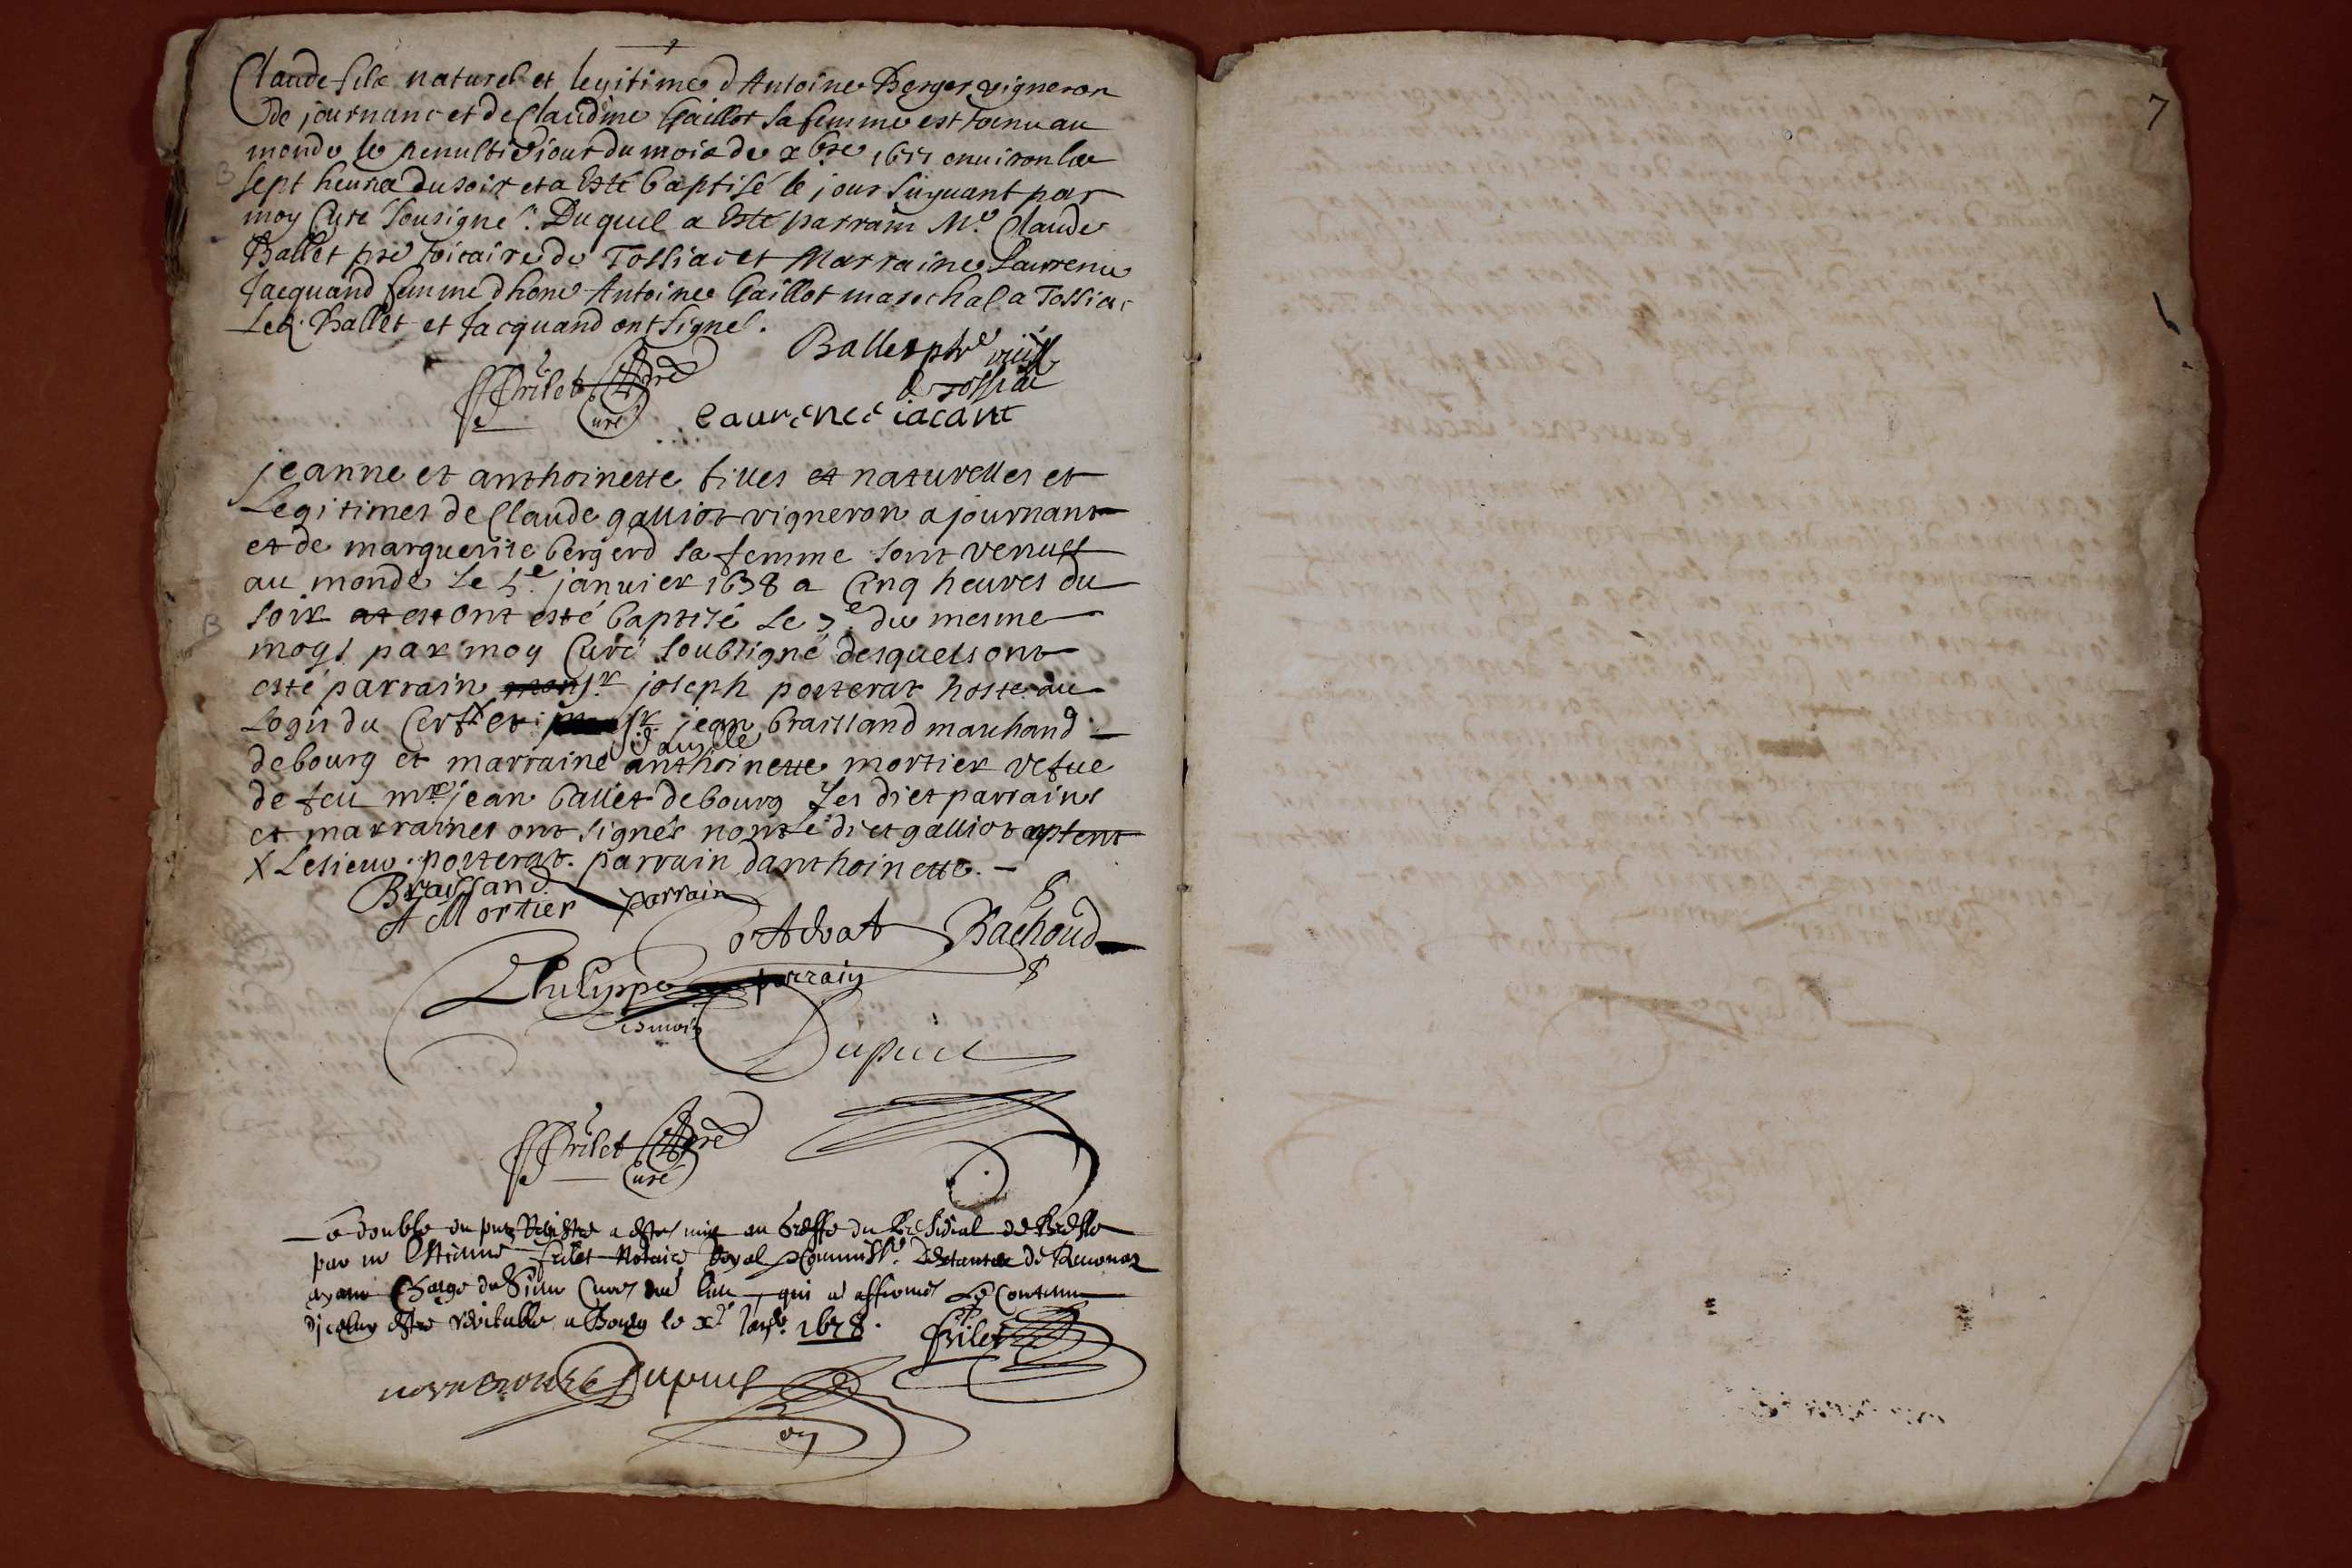 Claude fils naturel et legitime d'Antoine Berger vigneron
de journanc et de Claudine Gaillot sa femme est venu au
monde le penultie jour du mois de xbre 1677 environ les
sept heures du soir et a esté baptisé le jour suyuant par
moy Curé sousigné. Duquel a esté parrain Mre Claude
Ballet pre vicaire de Tossiac et Marraine Laurence
Jacquand femme d'hone Antoine Gaillot marechal a Tossiac
Led. Ballet et Jacquand ont signé.
Ballet ptre vic
de Tossiac
Frilet pre
Curé
Laurence iacant
jeanne et anthoinette filles et naturelles et
Legitimes de Claude galliot vigneron a journant
et de marguerite bergerd sa femme sont venues
au monde Le 5e janvier 1678 a Cinq heures du
soir at est ont esté baptisé Le 7e du mesme
moys par moy Curé soubsigné desquels ont
esté parrain sr joseph posterat hoste au
Logis du Cerf X et sr jean braissand marchand
de bourg et marraine damlle anthoinette mortier vefue
de feu mre jean ballet de bourg Les diet parrains
et marraines ont signés non Le diet galliot
X Le sieur posterat parrain danthoinette. –
Braissand parrain
A Mortier
Advoat Bachoud
Philippe parrain
esmoin
Dupuis
Frilet pre
Curé
Le double du pnt Registre a esté mis au Greffe du Presidial de Bresse
par me Estienne frilet Notaire Royal et Commissre
ayant Charge du Sieur Curé dud lieu, qui a affirmé Le Contenu
dicelluy estre veritable a Bourg le 1678.
Frilet
Dupuis
7
B
B